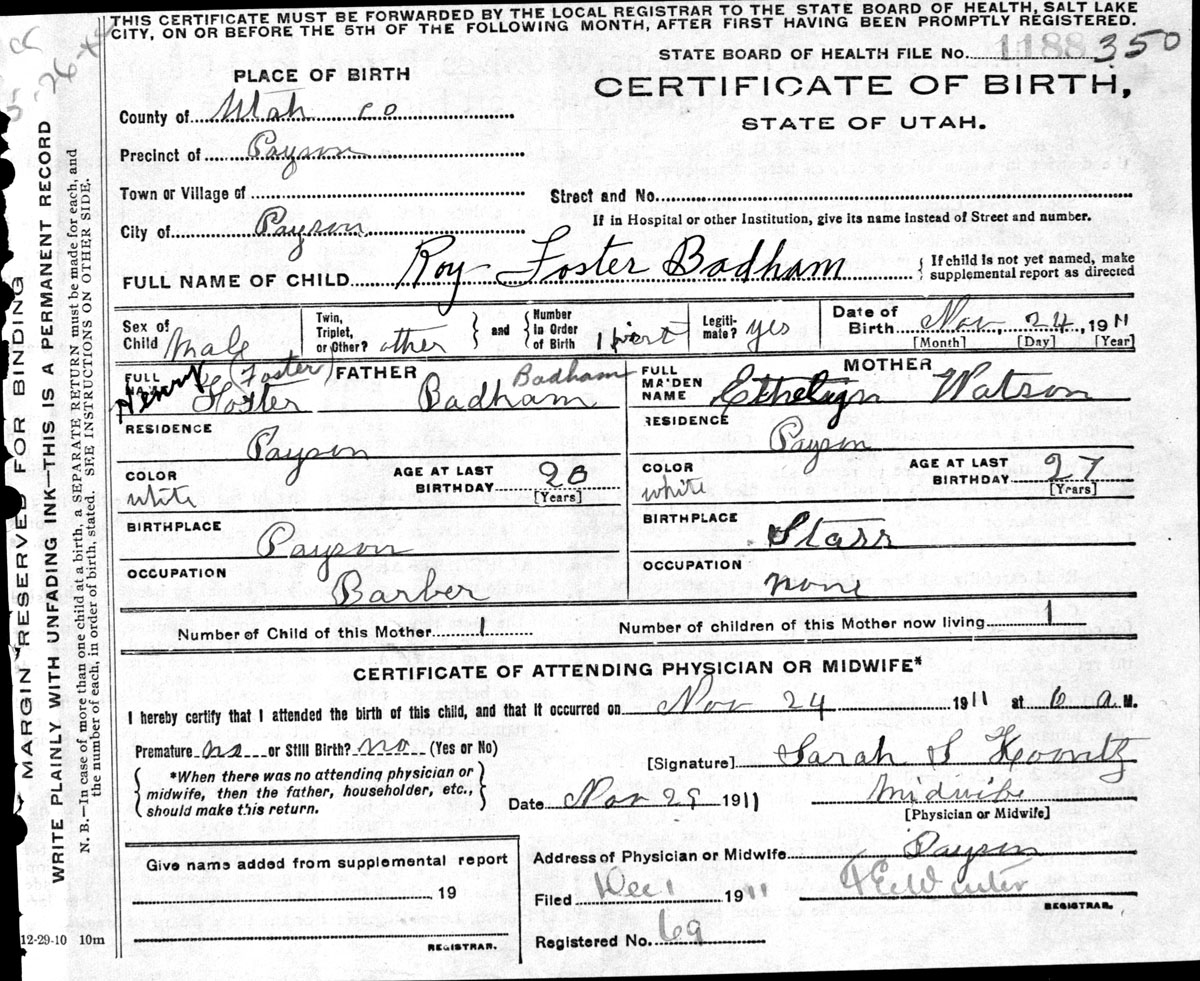 THIS CERTIFICATE MUST BE FORWARDED BY THE LOCAL REGISTRAR TO THE STATE BOARD OF HEALTH, SALT LAKE
CITY, ON OR BEFORE THE 5TH OF THE FOLLOWING MONTH, AFTER FIRST HAVING BEEN PROMPTLY REGISTERED.
STATE BOARD OF HEALTH FILE No. 1188 350
PLACE OF BIRTH
CERTIFICATE OF BIRTH,
STATE OF UTAH.
County of Utah co
Precinct of Payson
Town or Village of
Street and No.
City of Payson
If in Hospital or other Institution, give its name instead of Street and number.
FULL NAME OF CHILD Roy Foster Badham
If child is not yet named, make
supplemental report as directed
Sex of Child Male
Twin, Triplet, or Other? other
and
Number In Order of Birth 1 first
Legiti-mate? yes
Date of Birth Nov. 24, 1911
[Month] [Day] [Year]
FATHER
FULL NAME Henry Foster (Foster) Badham Badham
MOTHER
FULL MAIDEN NAME Watson
RESIDENCE Payson
RESIDENCE Payson
COLOR white
AGE AT LAST BIRTHDAY 28 [Years]
COLOR white
AGE AT LAST BIRTHDAY 27 [Years]
BIRTHPLACE Payson
BIRTHPLACE Starr
OCCUPATION Barber
OCCUPATION none
Number of Child of this Mother 1
Number of children of this Mother now living 1
CERTIFICATE OF ATTENDING PHYSICIAN OR MIDWIFE*
I hereby certify that I attended the birth of this child, and that it occurred on Nov 24 1911 at 6 a. M.
Premature no or Still Birth? no (Yes or No)
[Signature] Sarah S Koontz
*When there was no attending physician or
midwife, then the father, householder, etc.,
should make this return.
Date Nov 29 1911
Midwife
[Physician or Midwife]
Give name added from supplemental report
19
REGISTRAR.
Address of Physician or Midwife Payson
Filed Dec 1 1911
REGISTRAR.
Registered No. 69
12-29-10 10m
MARGIN RESERVED FOR BINDING
WRITE PLAINLY WITH UNFADING INK—THIS IS A PERMANENT RECORD
N. B.—In case of more than one child at a birth, a SEPARATE RETURN must be made for each, and
the number of each, in order of birth, stated. SEE INSTRUCTIONS ON OTHER SIDE.